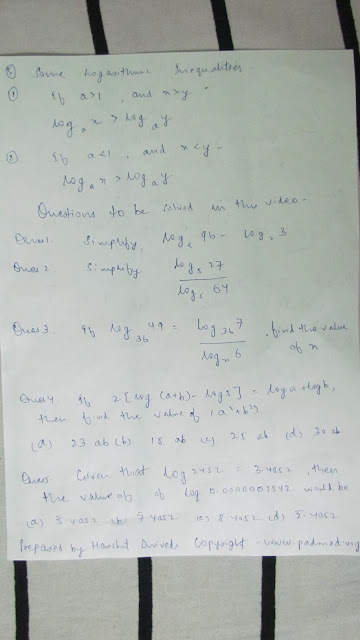 Some Logarithmic Inequalities.
① If a>1, and x>y.
log_a x > log_a y
② If a<1, and x<y.
log_a x > log_a y
Questions to be solved in this video.
Ques 1. Simplify, log₂ 96 - log₂ 3
Ques 2 Simplify log₅ 27 / log₅ 64
Ques 3. If log₃₆ 49 = log₃₆ 7 / log_x 6 . find the value
of x
Ques 4 If 2[log (a+b) - log 5] = log a + log b,
then find the value of (a²+b²).
(a) 23 ab (b) 18 ab (c) 25 ab (d) 30 ab
Ques 5. Given that log 2452 = 3.4052, then
the value of of log would be
(a) 5.4052 (b) 7.4052 (c) 8.4052 (d) 5.4052
Prepared by Harshit Dwivedi Copyright - www.padmed.org